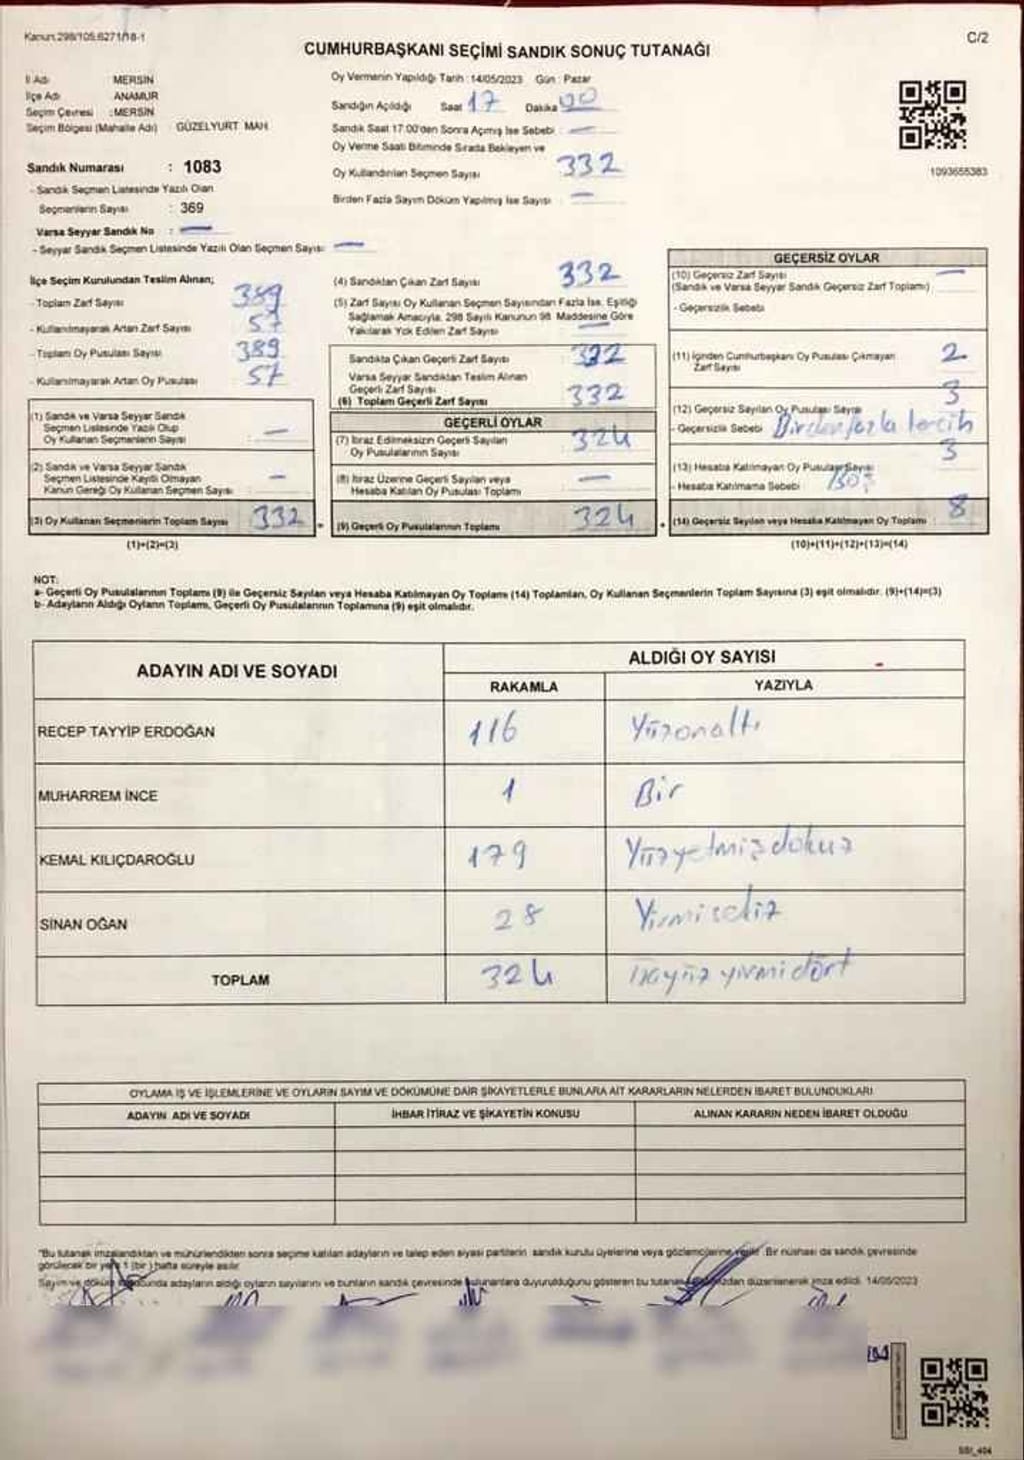 Kanun:298/105;6271/18-1
C/2
CUMHURBAŞKANI SEÇİMİ SANDIK SONUÇ TUTANAĞI
İl Adı : MERSİN
İlçe Adı : ANAMUR
Seçim Çevresi : MERSİN
Seçim Bölgesi (Mahalle Adı) : GÜZELYURT MAH.
Sandık Numarası : 1083
- Sandık Seçmen Listesinde Yazılı Olan
Seçmenlerin Sayısı : 369
Varsa Seyyar Sandık No : —
- Seyyar Sandık Seçmen Listesinde Yazılı Olan Seçmen Sayısı: —
Oy Vermenin Yapıldığı Tarih : 14/05/2023 Gün : Pazar
Sandığın Açıldığı Saat 17 Dakika 00
Sandık Saat 17:00'den Sonra Açılmış İse Sebebi : —
Oy Verme Saati Bitiminde Sırada Bekleyen ve
Oy Kullandırılan Seçmen Sayısı 332
Birden Fazla Sayım Döküm Yapılmış İse Sayısı : —
1093655383
İlçe Seçim Kurulundan Teslim Alınan;
- Toplam Zarf Sayısı 389
- Kullanılmayarak Artan Zarf Sayısı 57
- Toplam Oy Pusulası Sayısı 389
- Kullanılmayarak Artan Oy Pusulası 57
(1) Sandık ve Varsa Seyyar Sandık
Seçmen Listesinde Yazılı Olup
Oy Kullanan Seçmenlerin Sayısı : —
(2) Sandık ve Varsa Seyyar Sandık
Seçmen Listesinde Kayıtlı Olmayan
Kanun Gereği Oy Kullanan Seçmen Sayısı : —
(3) Oy Kullanan Seçmenlerin Toplam Sayısı 332
(1)+(2)=(3)
(4) Sandıktan Çıkan Zarf Sayısı 332
(5) Zarf Sayısı Oy Kullanan Seçmen Sayısından Fazla İse, Eşitliği
Sağlamak Amacıyla, 298 Sayılı Kanunun 98. Maddesine Göre
Yakılarak Yok Edilen Zarf Sayısı —
Sandıkta Çıkan Geçerli Zarf Sayısı 332
Varsa Seyyar Sandıktan Teslim Alınan
Geçerli Zarf Sayısı
(6) Toplam Geçerli Zarf Sayısı 332
GEÇERLİ OYLAR
(7) İtiraz Edilmeksizin Geçerli Sayılan
Oy Pusulalarının Sayısı 324
(8) İtiraz Üzerine Geçerli Sayılan veya
Hesaba Katılan Oy Pusulası Toplamı —
(9) Geçerli Oy Pusulalarının Toplamı 324
GEÇERSİZ OYLAR
(10) Geçersiz Zarf Sayısı —
(Sandık ve Varsa Seyyar Sandık Geçersiz Zarf Toplamı)
- Geçersizlik Sebebi
(11) İçinden Cumhurbaşkanı Oy Pusulası Çıkmayan
Zarf Sayısı 2
(12) Geçersiz Sayılan Oy Pusula Sayısı 3
- Geçersizlik Sebebi Birden fazla tercih
(13) Hesaba Katılmayan Oy Pusulası Sayısı 3
- Hesaba Katılmama Sebebi Boş
(14) Geçersiz Sayılan veya Hesaba Katılmayan Oy Toplamı : 8
(10)+(11)+(12)+(13)=(14)
NOT:
a- Geçerli Oy Pusulalarının Toplamı (9) ile Geçersiz Sayılan veya Hesaba Katılmayan Oy Toplamı (14) Toplamları, Oy Kullanan Seçmenlerin Toplam Sayısına (3) eşit olmalıdır. (9)+(14)=(3)
b- Adayların Aldığı Oyların Toplamı, Geçerli Oy Pusulalarının Toplamına (9) eşit olmalıdır.
ADAYIN ADI VE SOYADI
ALDIĞI OY SAYISI
RAKAMLA YAZIYLA
RECEP TAYYİP ERDOĞAN 116 Yüzonaltı
MUHARREM İNCE 1 Bir
KEMAL KILIÇDAROĞLU 179 Yüzyetmişdokuz
SİNAN OĞAN 28 Yirmisekiz
TOPLAM 324 üçyüz yirmidört
OYLAMA İŞ VE İŞLEMLERİNE VE OYLARIN SAYIM VE DÖKÜMÜNE DAİR ŞİKAYETLERLE BUNLARA AİT KARARLARIN NELERDEN İBARET BULUNDUKLARI
ADAYIN ADI VE SOYADI İHBAR İTİRAZ VE ŞİKAYETİN KONUSU ALINAN KARARIN NEDEN İBARET OLDUĞU
"Bu tutanak imzalandıktan ve mühürlendikten sonra seçime katılan adayların ve talep eden siyasi partilerin sandık kurulu üyelerine veya gözlemcilerine verilir. Bir nüshası da sandık çevresinde
görülecek bir yere 1 (bir) hafta süreyle asılır.
Sayım ve döküm sonucunda adayların aldığı oyların sayılarını ve bunların sandık çevresinde bulunanlara duyurulduğunu gösteren bu tutanak düzenlenerek imza edildi. 14/05/2023
SSI_404